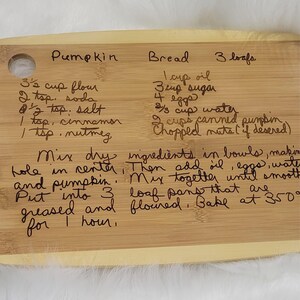 Pumpkin Bread 3 loafs
3½ cup flour
2 tsp. soda
1½ tsp. salt
1 tsp. cinnamon
1 tsp. nutmeg
1 cup oil
3 cup sugar
4 eggs
⅔ cup water
2 cups canned pumpkin
Chopped nuts (if desered)
Mix dry ingredients in bowls, making
hole in center, Then add oil, eggs, water
and pumpkin. Mix together until smooth
Put into 3 loaf pans that are
greased and floured. Bake at 350°
for 1 hour.